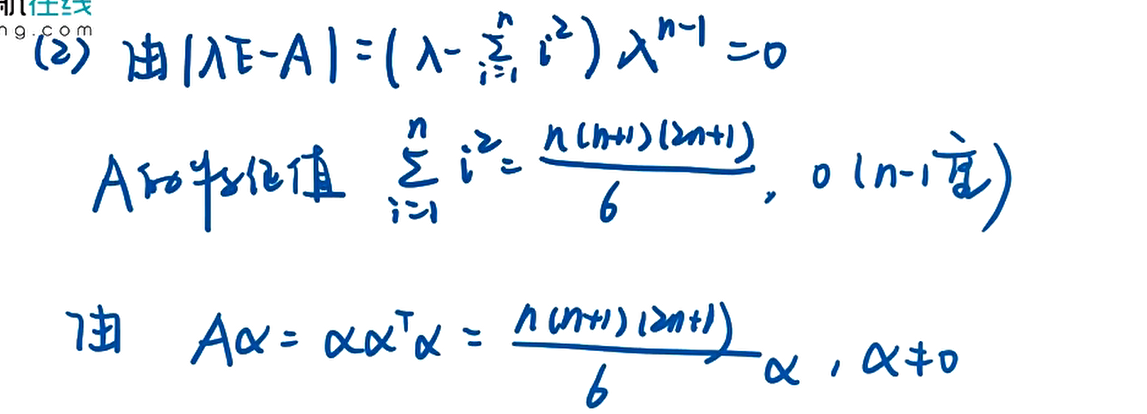 航在线
ng.com
(2) 由|λE-A|=(λ-∑_{i=1}^{n} i²)λ^{n-1}=0
A的特征值 ∑_{i=1}^{n} i²=\frac{n(n+1)(2n+1)}{6}, 0 (n-1重)
由 Aα=αα^Tα=\frac{n(n+1)(2n+1)}{6}α, α≠0